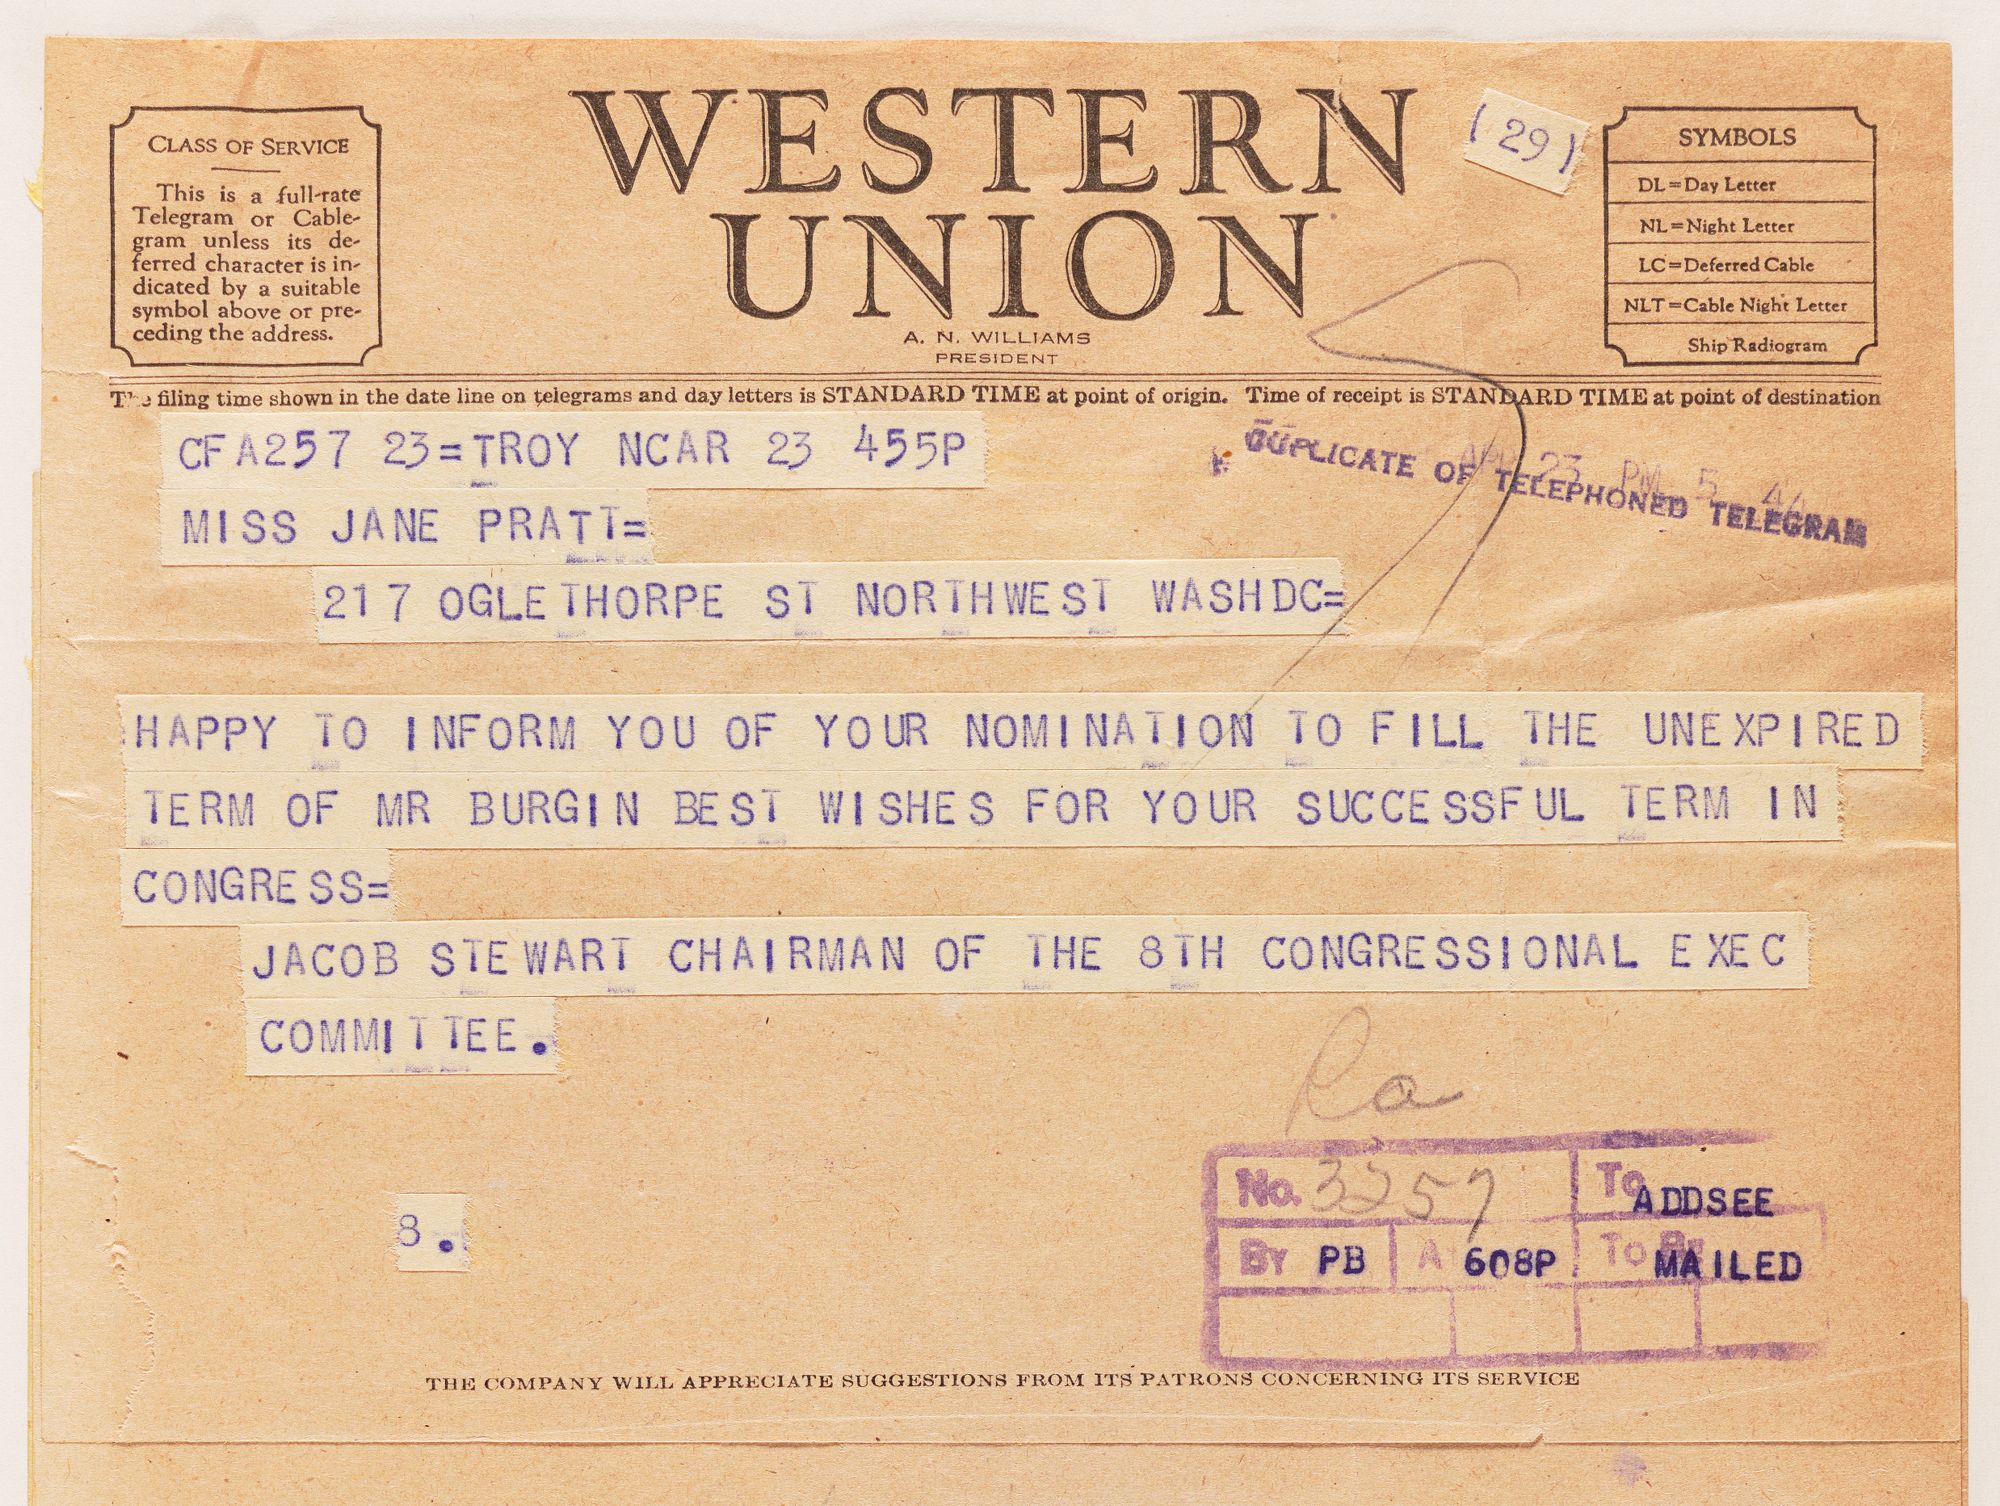 WESTERN
UNION
(29)
A. N. WILLIAMS
PRESIDENT
CLASS OF SERVICE
This is a full-rate
Telegram or Cable-
gram unless its de-
ferred character is in-
dicated by a suitable
symbol above or pre-
ceding the address.
SYMBOLS
DL=Day Letter
NL=Night Letter
LC=Deferred Cable
NLT=Cable Night Letter
Ship Radiogram
The filing time shown in the date line on telegrams and day letters is STANDARD TIME at point of origin. Time of receipt is STANDARD TIME at point of destination
CFA257 23=TROY NCAR 23 455P
23 PM 5 44
DUPLICATE OF TELEPHONED TELEGRAM
MISS JANE PRATT=
217 OGLETHORPE ST NORTHWEST WASHDC=
HAPPY TO INFORM YOU OF YOUR NOMINATION TO FILL THE UNEXPIRED
TERM OF MR BURGIN BEST WISHES FOR YOUR SUCCESSFUL TERM IN
CONGRESS=
JACOB STEWART CHAIRMAN OF THE 8TH CONGRESSIONAL EXEC
COMMITTEE.
8.
No. 3257 To ADDSEE
By PB A 608P To MAILED
THE COMPANY WILL APPRECIATE SUGGESTIONS FROM ITS PATRONS CONCERNING ITS SERVICE